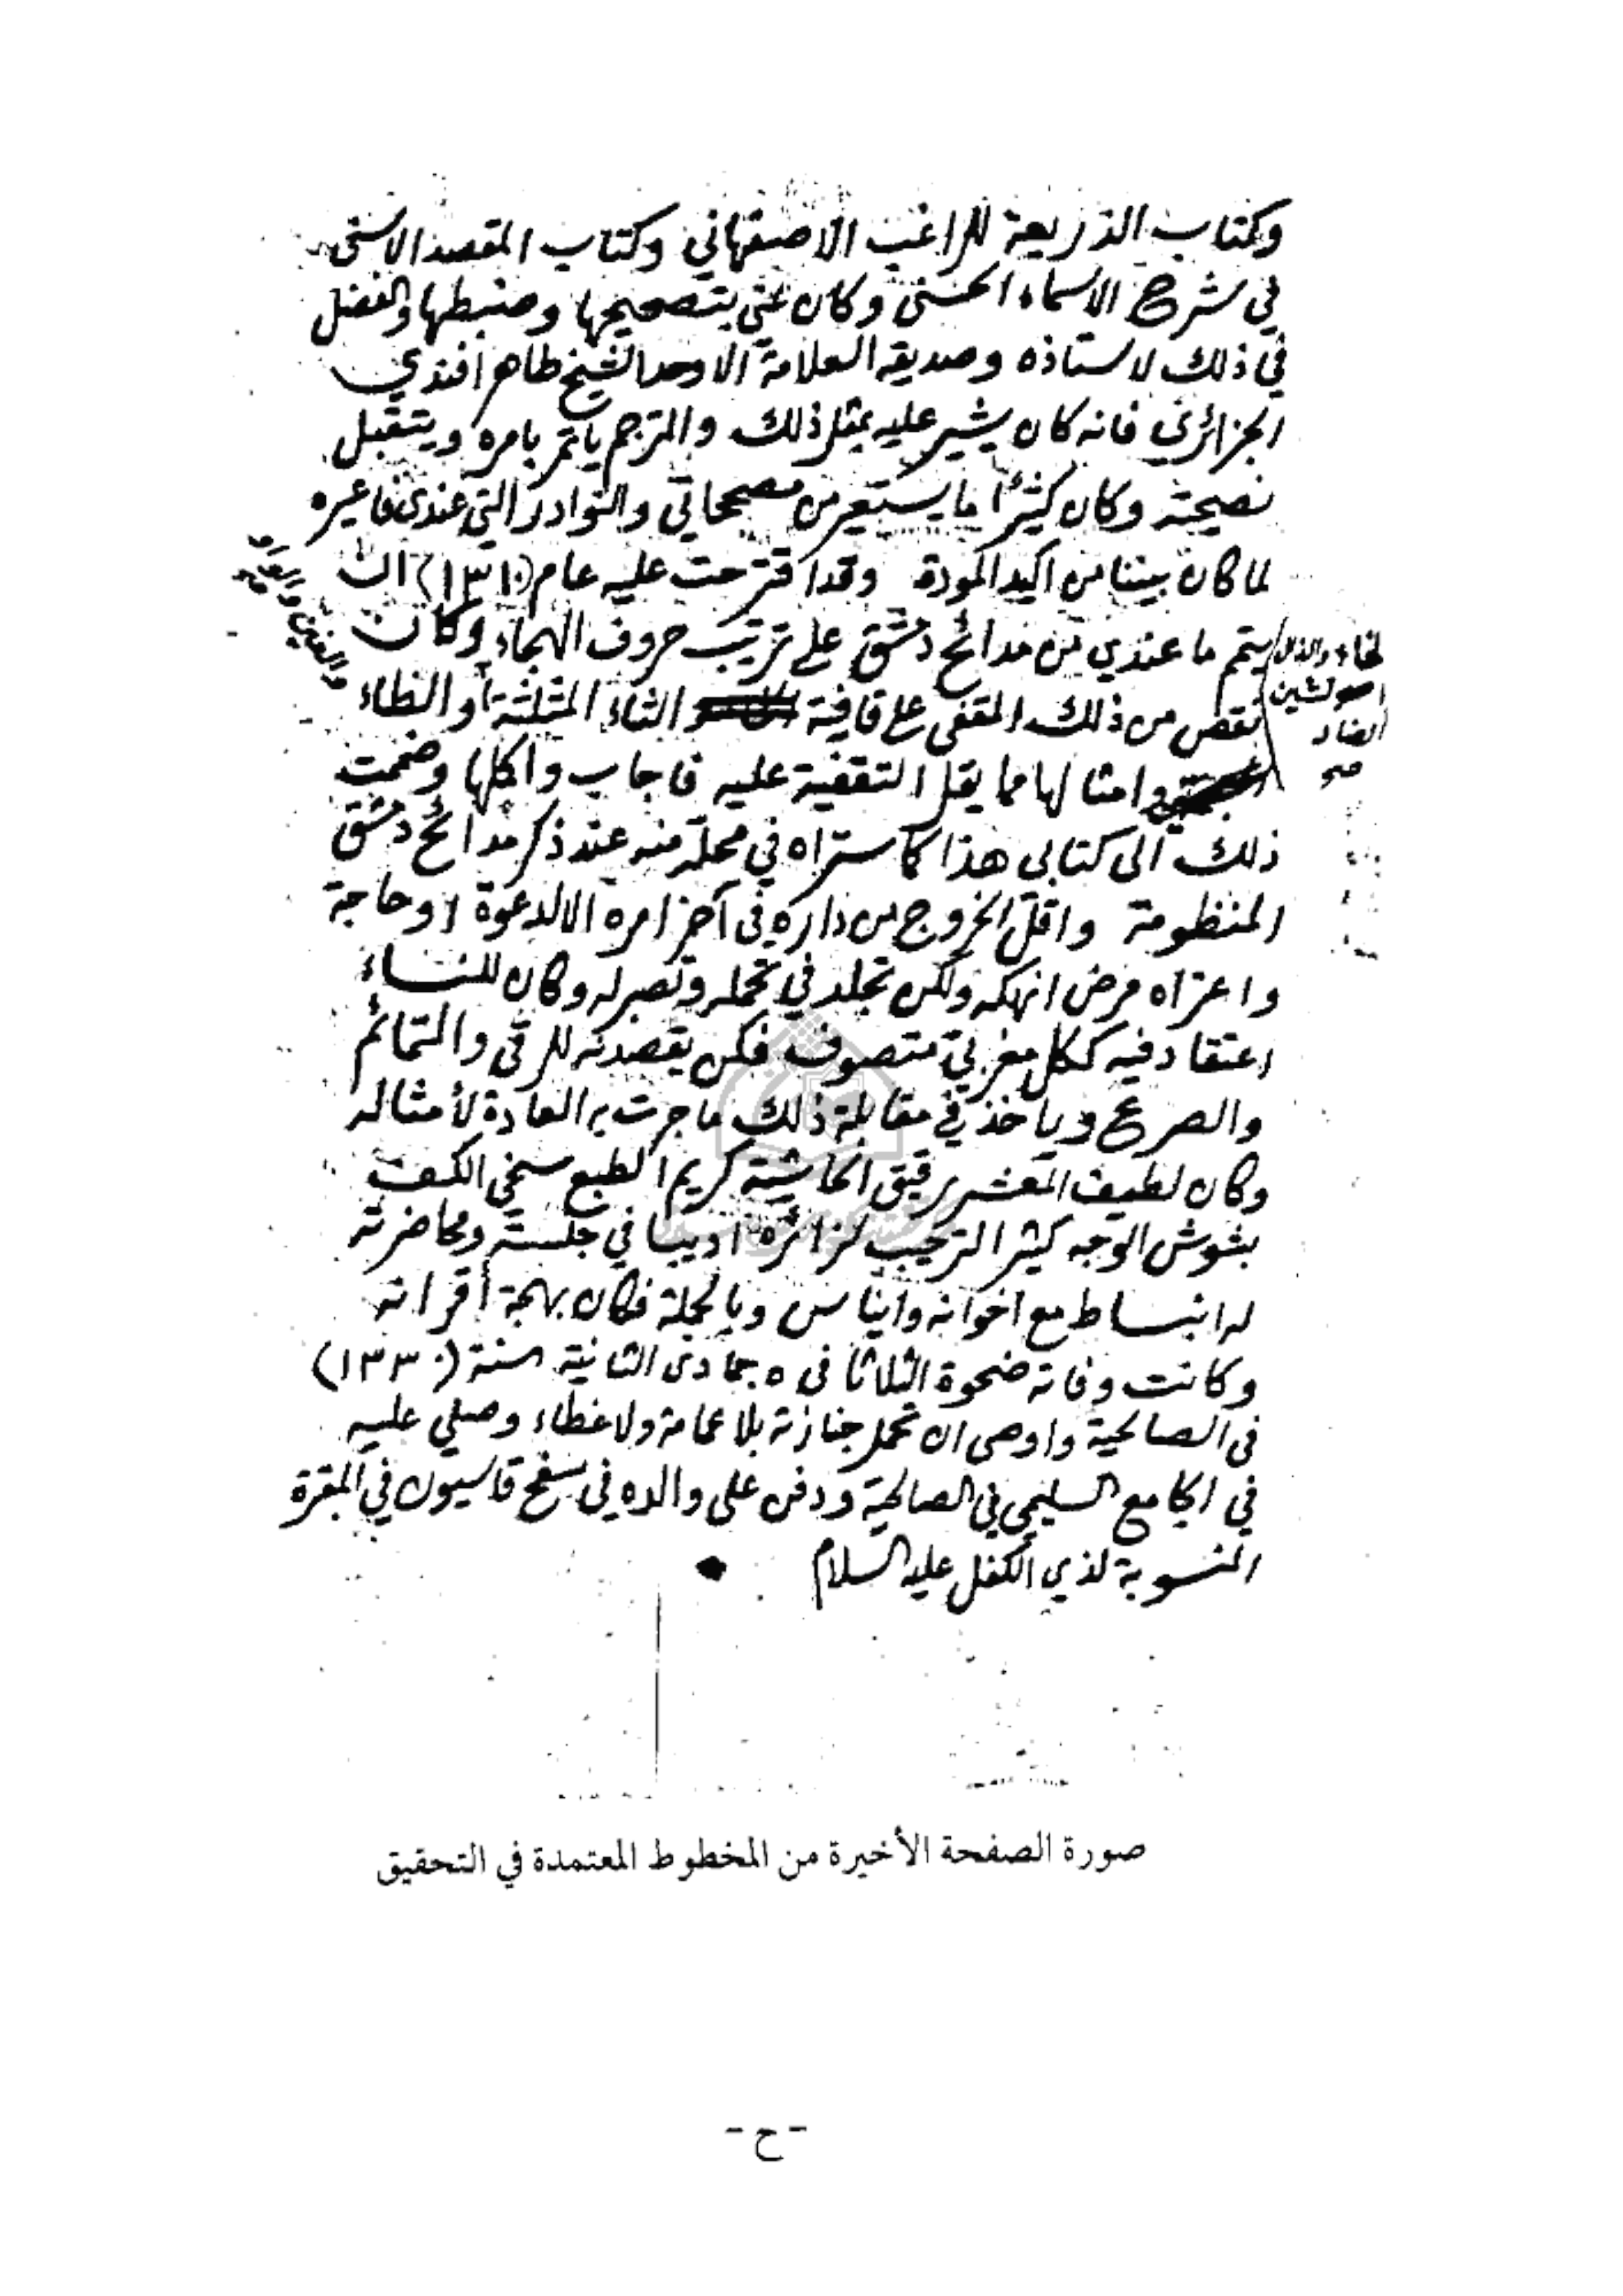 وكتاب الذريعة للراغب الاصفهاني وكتاب المقصد الاسنى
في شرح الاسماء الحسنى وكان عني بتصحيحها وضبطها والفضل
في ذلك لاستاذه وصديقه العلامة الاوحد الشيخ طاهر افندي
الجزائري فانه كان يشير عليه بمثل ذلك والمترجم ياتمر بامره ويتقبل
نصيحته وكان كثيرًا ما يستعير من مصححاتي والنوادر التي عندي فاعيره
لما كان بيننا من اكيد المودة وقد اقترحت عليه عام (١٣١٠) ان
يتم ما عندي من مدائح دمشق على ترتيب حروف الهجاء وكان
نقص من ذلك المقفى على قافية الثاء المثلثة والظاء
الخاء والذال
والشين
الضاد
صح
وامثالها مما يقل التقفية عليه فاجاب واكلها وضممت
ذلك الى كتابي هذا كما ستراه في محله منه عند ذكر مدائح دمشق
المنظومة واقل الخروج من داره في آخر امره الا لدعوة او حاجة
واعتراه مرض انهكه ولكن تجلد في تحمله وتصبر له وكان للنساء
اعتقاد فيه ككل مغربي متصوف فكن يقصدنه للرقى والتمائم
والصرع وياخذ في مقابلة ذلك ما جرت به العادة لأمثاله
وكان لطيف المعشر رقيق الحاشية كريم الطبع سخي الكف
بشوش الوجه كثير الترحيب لزائره اديبا في جلسته ومحاضرته
له انبساط مع اخوانه وايناس وبالجملة فكان بهجة أقرانه
وكانت وفاته ضحوة الثلاثا في ٥ جمادى الثانية سنة (١٣٣٠)
في الصالحية واوصى ان تحمل جنازته بلا عمامة ولا غطاء وصلي عليه
في الجامع السليمي في الصالحية ودفن على والده في سفح قاسيون في المقبرة
المنسوبة لذي الكفل عليه السلام
صورة الصفحة الأخيرة من المخطوط المعتمدة في التحقيق
- ح -